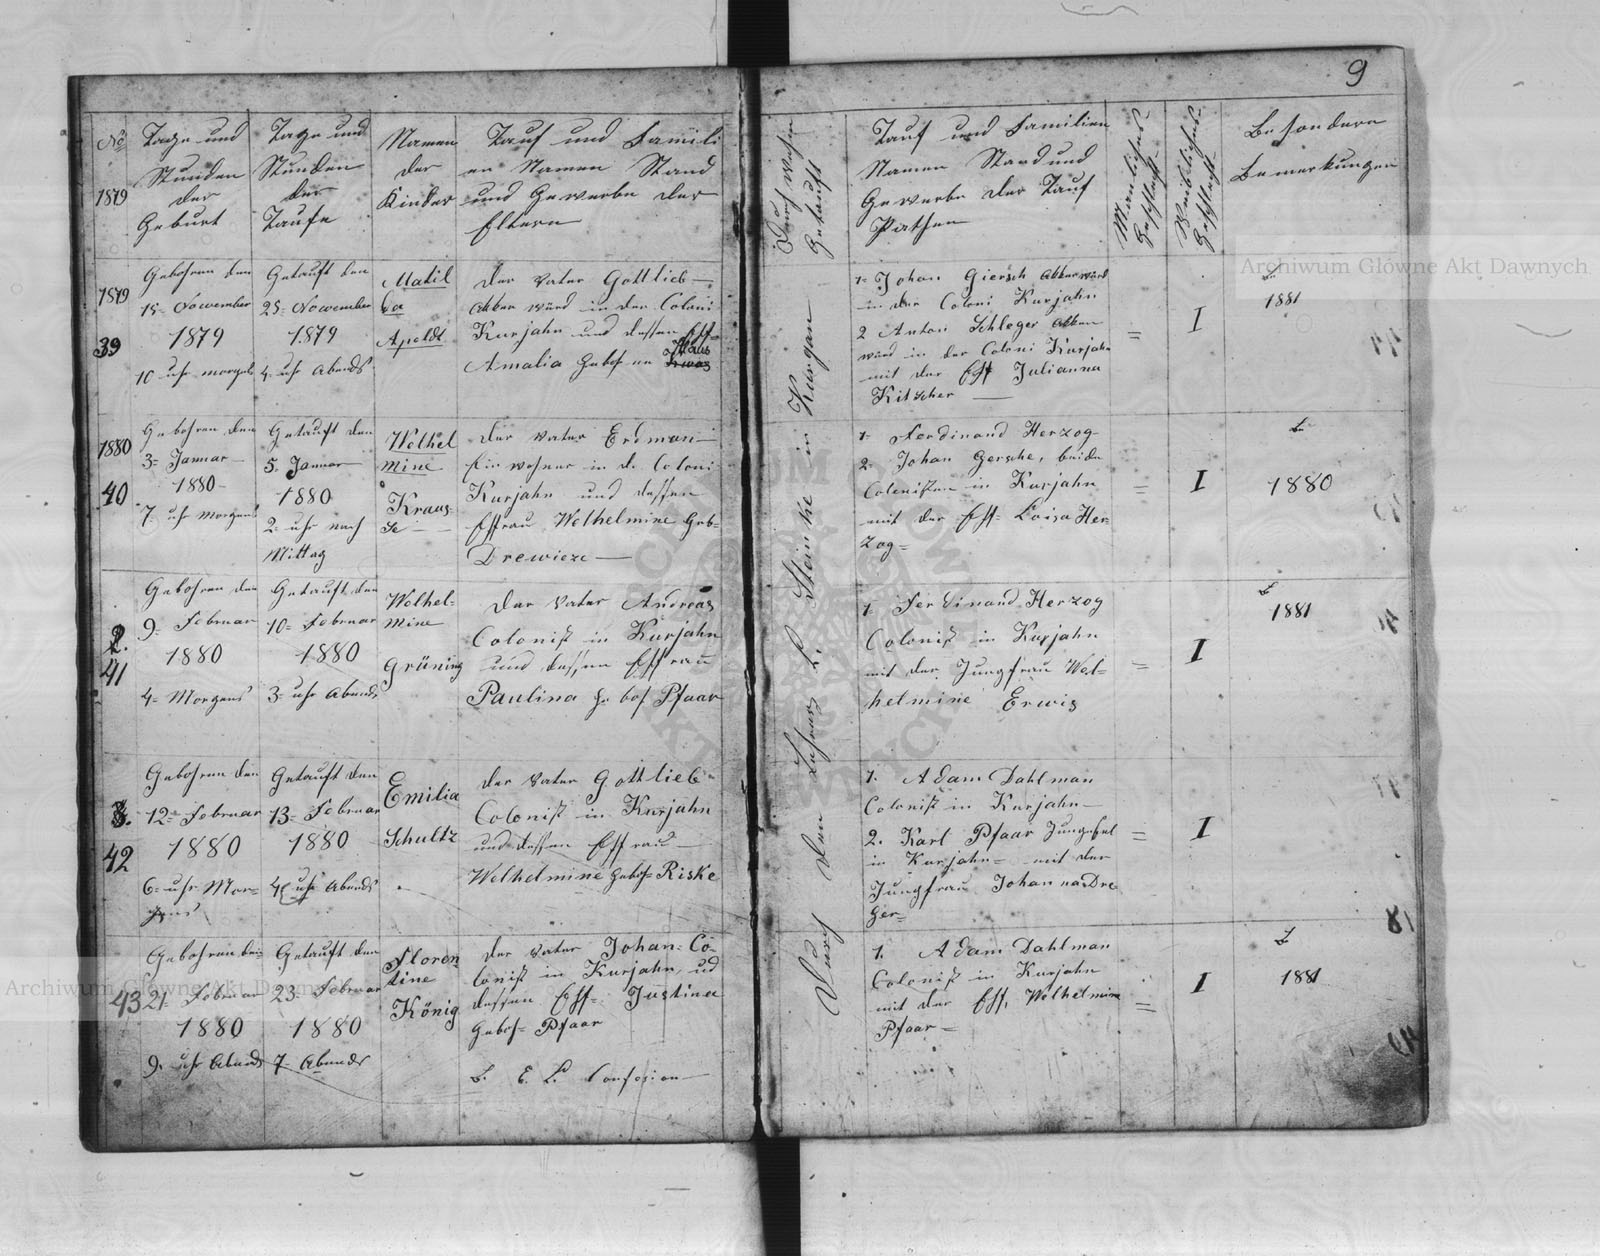 9
No
1879
Tage und
Stunden
der
Geburt
Tage und
Stunden
der
Taufe
Namen
der
Kinder
Tauf und Famili
en Namen Stand
und Gewerbe der
Eltern
Getauft
Tauf und Familien
Namen Stand und
Gewerbe der Tauf
Pathen
Mänliches
Geschlecht
Weibliches
Geschlecht
Besondere
Bemerkungen
1879
39
Gebohren den
15- November
1879
10 uhr morgens
Getauft den
25- November
1879
4- uhr Abends
Matil
da
Apoldt
Der Vater Gottlieb
Akker würd in der Coloni
Kurjahn und dessen Eff=
Amalia Geboh en
1- Johan Giersch Akkerwürd
in der Coloni Kurjahn
2 Anton Schleger Akker
würd in der Coloni Kurjahn
mit der Eff Julianna
Kitscher
=
I
1881
1880
40
Gebohren den
3- Januar
1880
7- uhr Morgens
Getauft den
5. Januar
1880
2- uhr nach
Mittag
Welhel
mine
Kraus-
se
Der Vater Erdman
Einwohner in d. Coloni
Kurjahn und dessen
Effrau Welhelmine Geb-
Drewieze
1- Ferdinand Herzog
2. Johan Gersche, beide
Colenisten in Kurjahn
mit der Eff- Loisa Her-
zog-
=
I
1880
2.
41
Gebohren den
9- Februar
1880
4- Morgens
Getauft den
10- Februar
1880
3- uhr Abends
Welhel-
mine
Grüning
Der Vater Andreas
Colonist in Kurjahn
und dessen Effrau
Paulina Ge boh Pfaar
1- Ferdinand Herzog
Colonist in Kurjahn
mit der Jungfrau Wel-
helmine Erwis
=
I
1881
3.
42
Gebohren den
12- Februar
1880
6- uhr Mor-
gens
Getauft den
13- Februar
1880
4 uhr Abends
Emilia
Schultz
Der Vater Gottlieb
Colonist in Kurjahn
und dessen Effrau
Welhelmine Geboh- Riske
1. Adam Dahlman
Colonist in Kurjahn
2. Karl Pfaar Jungesel
in Kurjahn- mit der
Jungfrau Johanna Dre
ger-
=
I
43
Gebohren den
21- Februar
1880
9. uhr Abends
Getauft den
23- Februar
1880
7- Abends
Floren
tine
König
Der Vater Johan- Co-
lonist in Kurjahn ud
dessen Eff- Justina
Geboh- Pfaar
E. L. Confesion
1. Adam Dahlman
Colonist in Kurjahn
mit der Eff, Welhelmine
Pfaar-
=
I
1881
Durch den Lehrer L. Steinke in Kurgan
Archiwum Główne Akt Dawnych
Archiwum Główne Akt Dawnych